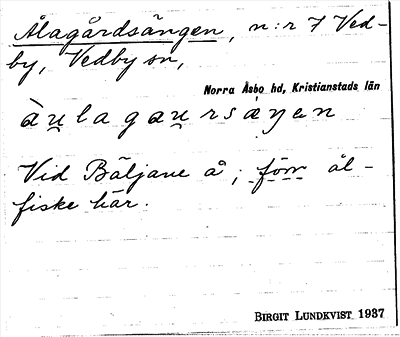 Ålagårdsängen, n:r 7 Ved-
by, Vedby sn,
Norra Åsbo hd, Kristianstads län
àu̯lagau̯rsáŋen
Vid Bäljane å; förr ål-
fiske här.
BIRGIT LUNDKVIST 1937